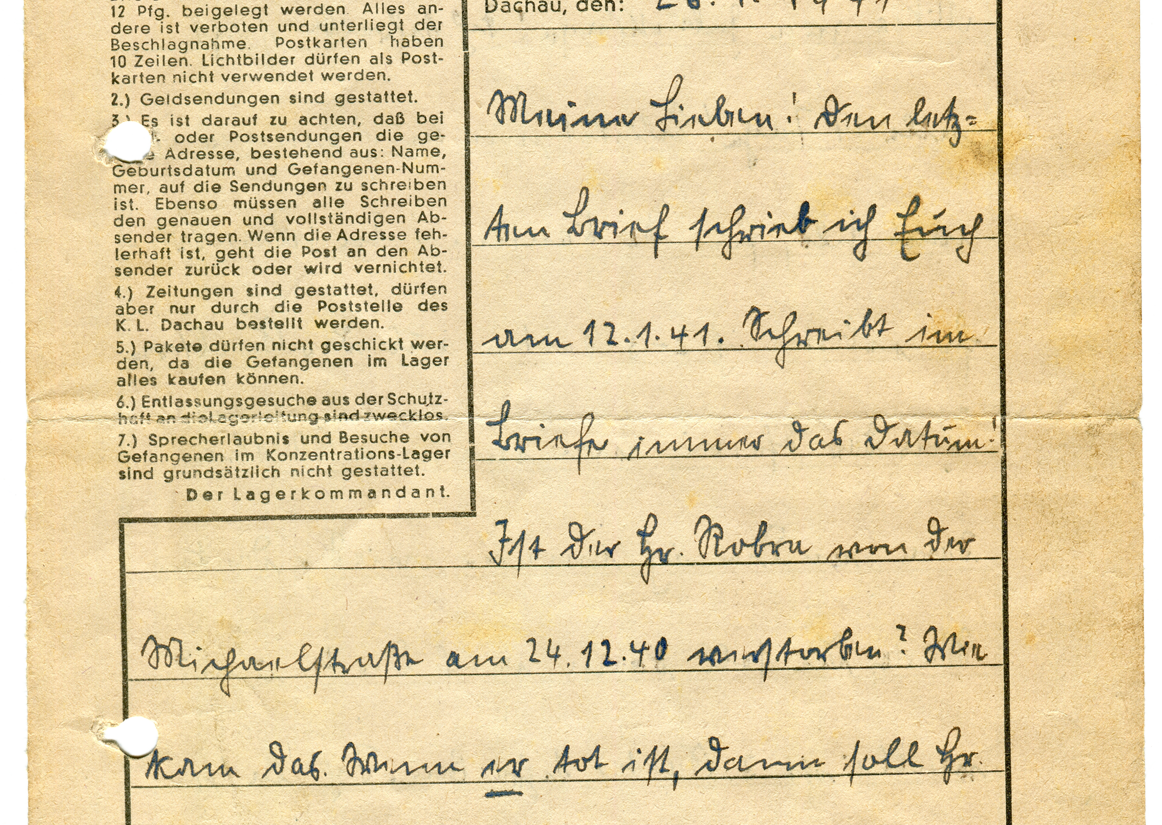 12 Pfg. beigelegt werden. Alles an-
dere ist verboten und unterliegt der
Beschlagnahme. Postkarten haben
10 Zeilen. Lichtbilder dürfen als Post-
karten nicht verwendet werden.
2.) Geldsendungen sind gestattet.
3.) Es ist darauf zu achten, daß bei
oder Postsendungen die ge-
Adresse, bestehend aus: Name,
Geburtsdatum und Gefangenen-Num-
mer, auf die Sendungen zu schreiben
ist. Ebenso müssen alle Schreiben
den genauen und vollständigen Ab-
sender tragen. Wenn die Adresse feh-
lerhaft ist, geht die Post an den Ab-
sender zurück oder wird vernichtet.
4.) Zeitungen sind gestattet, dürfen
aber nur durch die Poststelle des
K. L. Dachau bestellt werden.
5.) Pakete dürfen nicht geschickt wer-
den, da die Gefangenen im Lager
alles kaufen können.
6.) Entlassungsgesuche aus der Schutz-
haft an die Lagerleitung sind zwecklos.
7.) Sprecherlaubnis und Besuche von
Gefangenen im Konzentrations-Lager
sind grundsätzlich nicht gestattet.
Der Lagerkommandant.
Dachau, den: 1941
Meine Lieben! Den letz=
ten Brief schrieb ich Euch
am 12.1.41. Schreibt im
Briefe immer das Datum!
Ist der Hr. Kobra von der
Michaelstraße am 24.12.40 verstorben? Wie
kam das. Wenn er tot ist, dann soll Hr.